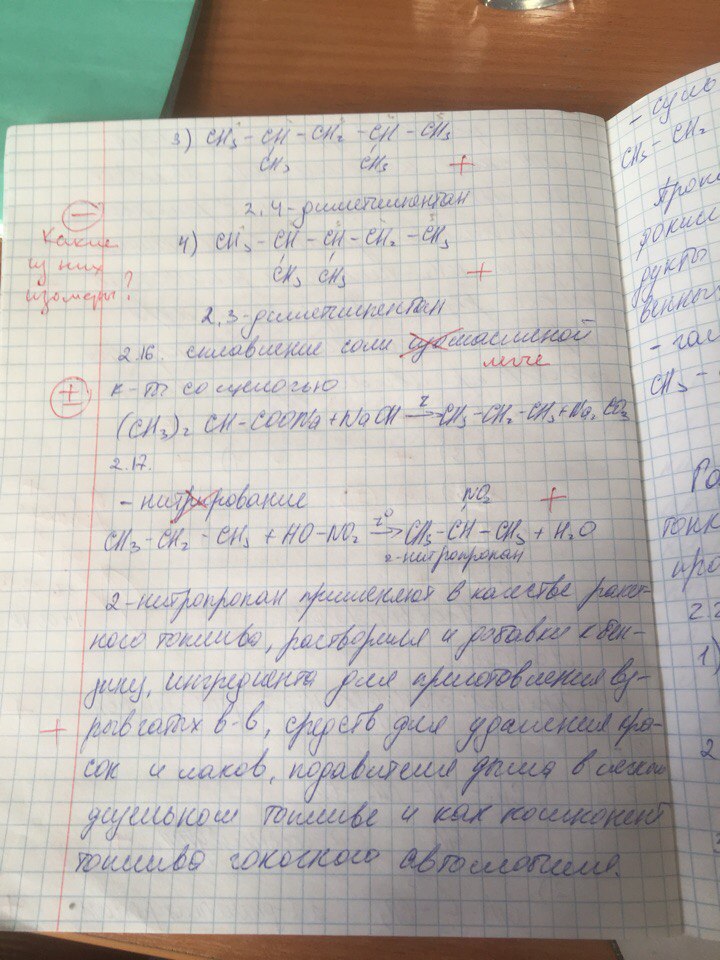 3) CH3 – CH – CH2 – CH – CH3
CH3 CH3 +
2,4-диметилпентан
–
Какие
из них
изомеры?
4) CH3 – CH – CH – CH2 – CH3
CH3 CH3 +
2,3-диметилпентан
2.16. сплавление соли масляной
легче
±
к-ты со щелочью
(CH3)2 CH-COONa + NaOH → CH3-CH2-CH3 + Na2CO3
2.17.
- нитрирование
NO2 +
CH3-CH2-CH3 + HO-NO2 t° → CH3-CH-CH3 + H2O
2-нитропропан
2-нитропропан применяют в качестве ракет-
ного топлива, растворителя и добавки к бен-
зину, ингредиента для приготовления вз-
+ рывчатых в-в, средств для удаления кра-
сок и лаков, подавителя дыма в легком
дизельном топливе и как компонент
топлива гоночного автомобиля.
- суль
CH3 – CH2
дукты
- гал
CH3 –
1)
2